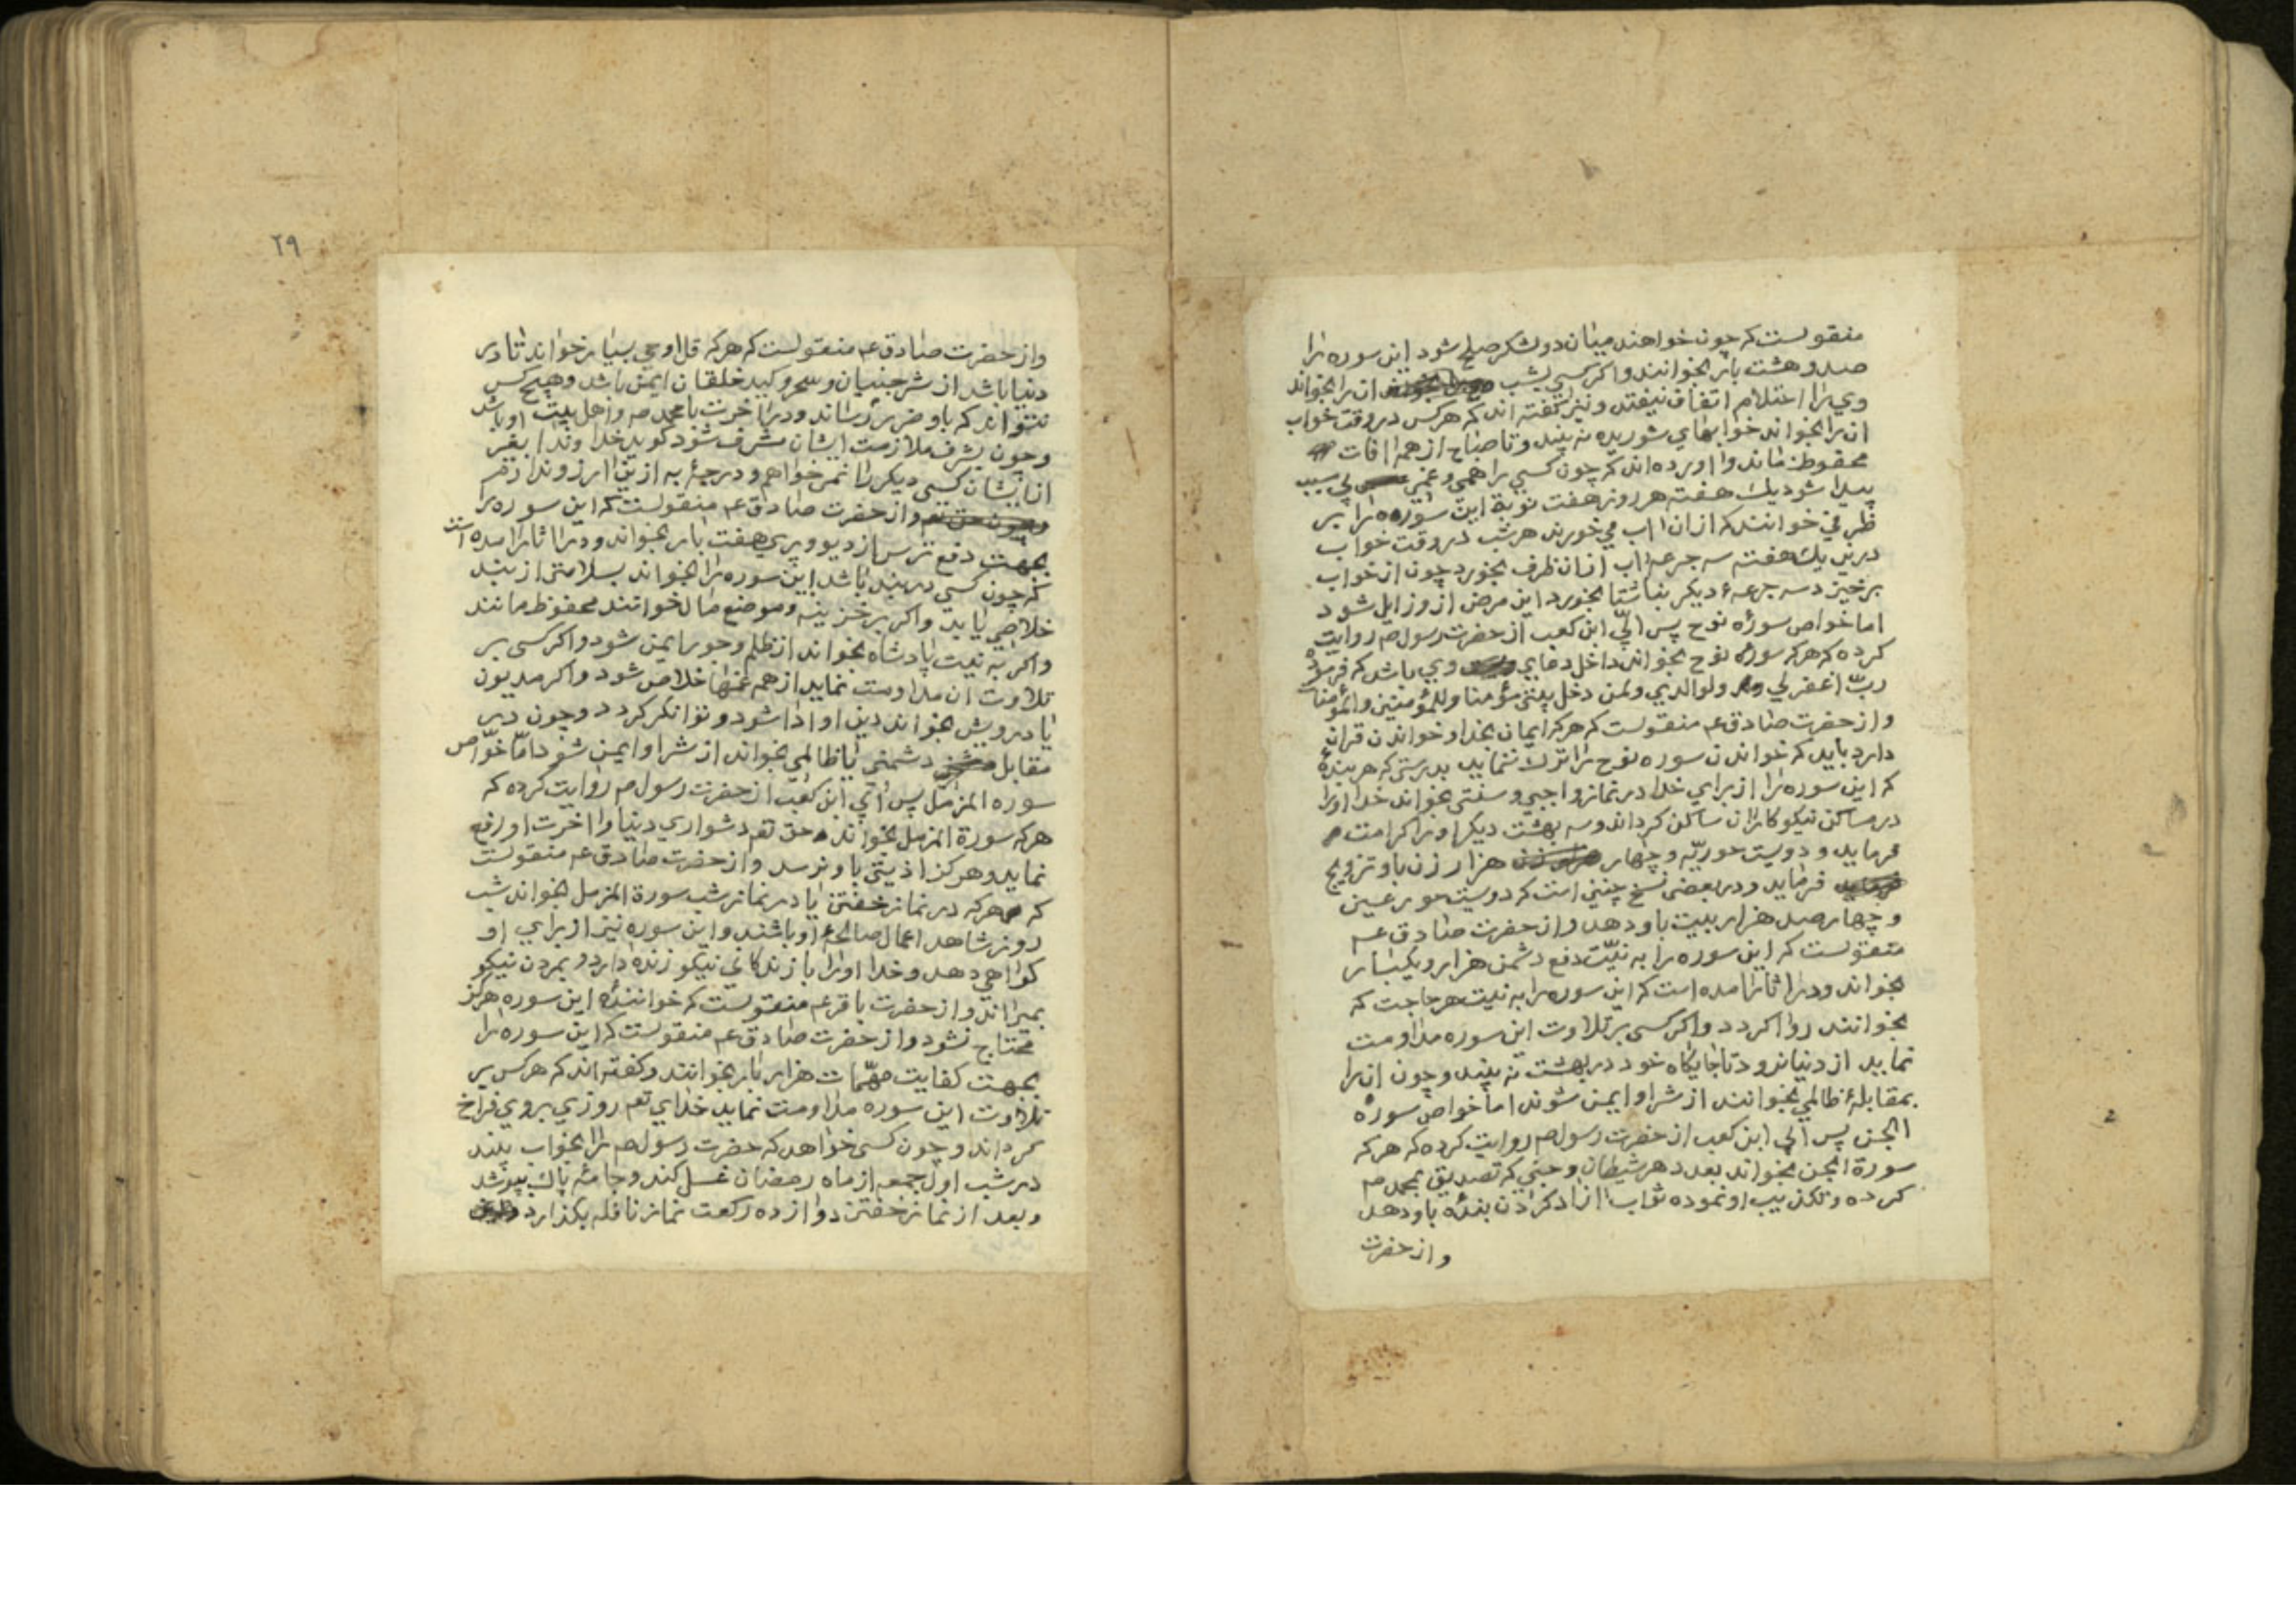 منقولست که چون خواهند میان دو لشکر صلح شود این سوره را
صد و هشت بار بخوانند و اکر کسی بشب ان را بخواند
وی را احتلام اتفاق نیفتد و نیز کفته اند که هر کس در وقت خواب
ان را بخواند خوابهای شوریده نه بیند و تا صباح از همه افات
محفوظ ماند و اورده اند که چون کسی را همی و غمی بی سبب
پیدا شود یک هفته هر روز هفت نوبة این سوره را بر
ظرفی خوانند که از ان اب می خورند هر شب در وقت خواب
درین یک هفته سه جرعه اب از ان ظرف بخورد چون از خواب
برخیزد سه جرعهٔ دیکر بناشتا بخورد این مرض از و زایل شود
اما خواص سورهٔ نوح پس ابیّ ابن کعب از حضرت رسول صم روایت
کرده که هر که سورهٔ نوح بخواند داخل دعایی وی باشد که فرمود
ربّ اغفر لی ولوالدیی ولمن دخل بیتی مؤمنا وللمؤمنین والمؤمنات
و از حضرت صادق عم منقولست که هر که ایمان بخدا و خواندن قران
دارد باید که خواندن سوره نوح را ترک ننماید بدرستی که هر بندهٔ
که این سوره را از برای خدا در نماز واجبی و سنتی بخواند خدا او را
در مساکن نیکو کاران ساکن کرداند و سه بهشت دیکر او را کرامت
فرماید و دویست حوریّه و چهار هزار زن باو تزویج
فرماید و در بعضی نسخ چنین است که دویست حور عین
و چهار صد هزار بیت باو دهد و از حضرت صادق عم
منقولست که این سوره را به نیّت دفع دشمن هزار و یکبار
بخواند و در اثار امده است که این سوره را به نیت هر حاجت که
بخوانند روا کردد و اکر کسی بر تلاوت این سوره مداومت
نماید از دنیا نرود تا جایکاه خود در بهشت نه بیند و چون ان را
بمقابلهٔ ظالمی بخوانند از شر او ایمن شوند اما خواص سورهٔ
الجن پس ابی ابن کعب از حضرت رسول صم روایت کرده که هر که
سورة الجن بخواند بعدد هر شیطان و جنی که تصدیق بمحمد صم
کرده و تکذیب او نموده ثواب ازاد کردن بندهٔ باو دهد
و از حضرت
٢٩
و از حضرت صادق عم منقولست که هر که قل اوحی بسیار خواند تا در
دنیا باشد از شر جنیان و سحر و کید خلقان ایمن باشد و هیچ کس
نتواند که باو ضرر رساند و در اخرت با محمد صم و اهل بیت او باشد
و چون بشرف ملازمت ایشان مشرف شود کوید خداوندا بغیر
از ایشان کسی دیکر را نمی خواهم و درجهٔ به از ین ارزو ندارم
و از حضرت صادق عم منقولست که این سوره را
بجهت دفع ترس از دیو و پری هفت بار بخواند و در اثار امده است
که چون کسی در بند باشد این سوره را بخواند بسلامتی از بند
خلاصی یابد و اکر بر خزینه و موضع مال خوانند محفوظ مانند
و اکر به نیت پادشاه بخواند از ظلم و جور ایمن شود و اکر کسی بر
تلاوت ان مداومت نماید از همه غمها خلاص شود و اکر مدیون
یا درویش بخواند دین او ادا شود و توانکر کردد و چون در
مقابل دشمنی یا ظالمی بخواند از شر او ایمن شود امّا خوّاص
سوره المزمل پس ابی ابن کعب از حضرت رسول صم روایت کرده که
هر که سورة المزمل بخواند حق تعم دشواری دنیا و اخرت او رفع
نماید و هرکز اذیتی باو نرسد و از حضرت صادق عم منقولست
که هر که در نماز خفتن یا در نماز شب سورة المزمل بخواند شب
روز شاهد اعمال صالحهٔ او باشند و این سوره نیز از برای او
کواهی دهد و خدا او را با زندکانی نیکو زنده دارد و بمردن نیکو
بمیراند و از حضرت باقر عم منقولست که خوانندهٔ این سوره هرکز
محتاج نشود و از حضرت صادق عم منقولست که این سوره را
بجهت کفایت مهّمات هزار بار بخوانند و کفته اند که هر کس بر
تلاوت این سوره مداومت نماید خدای تعم روزی بر وی فراخ
کرداند و چون کسی خواهد که حضرت رسول صم را بخواب بیند
در شب اول جمعه از ماه رمضان غسل کند و جامهٔ پاک بپوشد
و بعد از نماز خفتن دوازده رکعت نماز نافله بکذارد